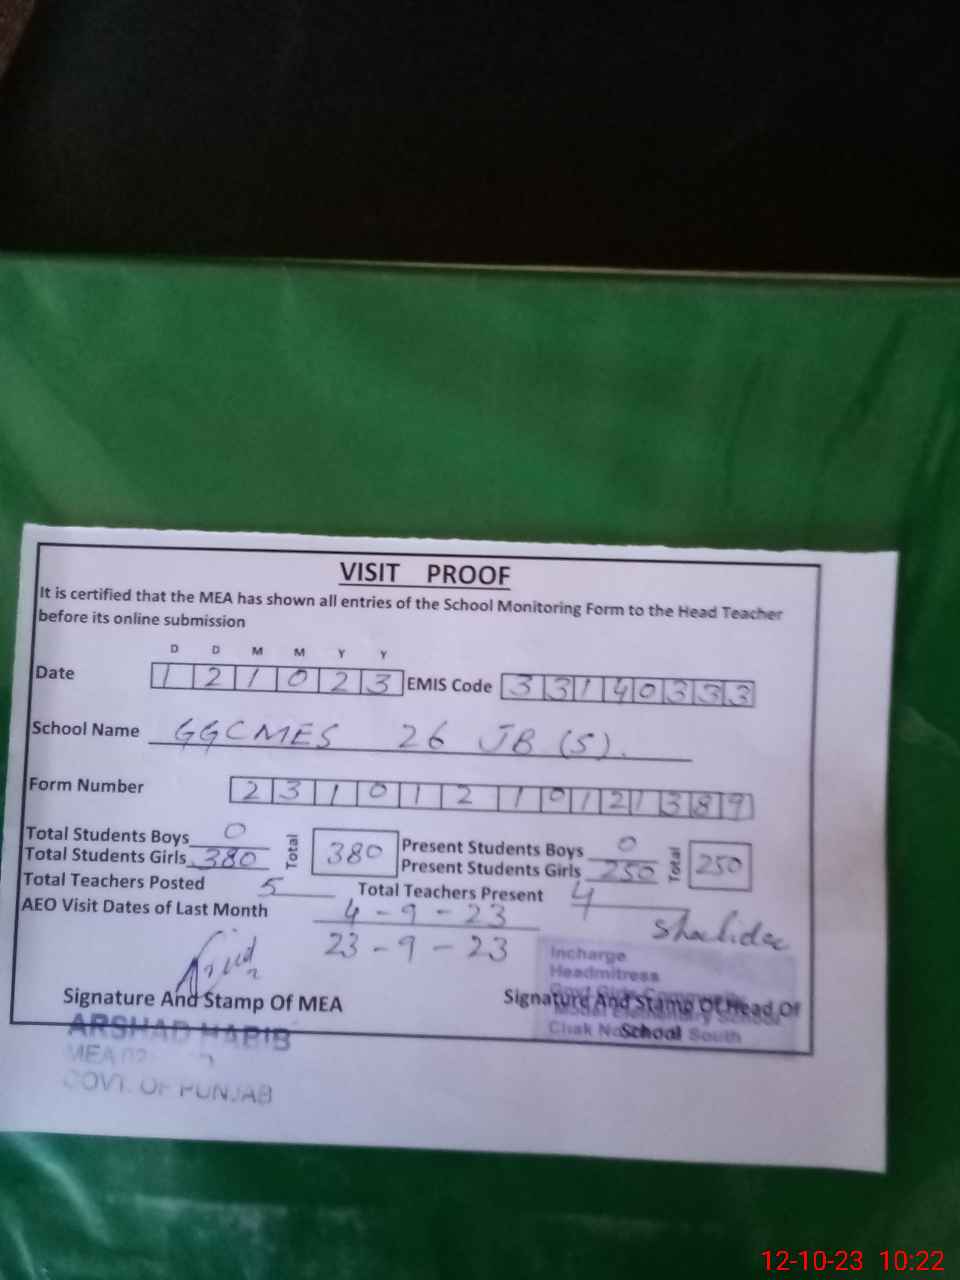 VISIT PROOF
It is certified that the MEA has shown all entries of the School Monitoring Form to the Head Teacher
before its online submission
D D M M Y Y
Date 1 2 1 0 2 3 EMIS Code 3 3 1 4 0 3 3 3
School Name GGCMES 26 JB (S).
Form Number 2 3 1 0 1 2 1 0 1 2 1 3 8 9
Total Students Boys 0 Total 380 Present Students Boys 0 Total 250
Total Students Girls 380 Present Students Girls 250
Total Teachers Posted 5 Total Teachers Present 4
AEO Visit Dates of Last Month 4-9-23
23-9-23
Incharge
Headmitress
Signature And Stamp Of MEA Signature And Stamp Of Head Of
School
Model Elementary School
Chak No South
ARSHAD HABIB
MEA
GOVT. OF PUNJAB
12-10-23 10:22